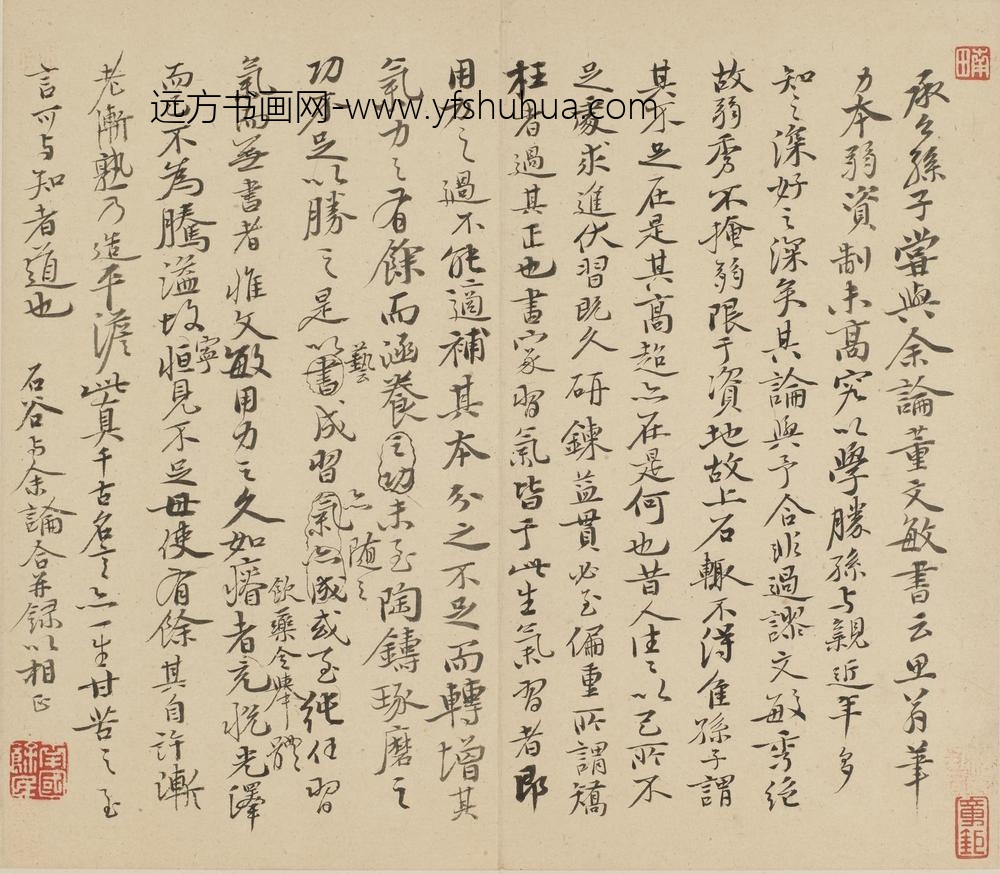 承公孫子嘗與余論董文敏書云思翁筆
力本弱資制未髙究以學勝孫與親近年多
知之深好之深矣其論與予合非過謬文敏秀絶
故弱秀不掩弱限于資地故上石輙不得佳孫子謂
其不足在是其髙超亦在是何也昔人往往以己所不
足處求進伏習既久研鍊益貫必至偏重所謂矯
枉者過其正也書家習氣皆于此生氣習者即
用力之過不能適補其本分之不足而轉增其
氣力之有餘而涵養之功未至陶鑄琢磨之
功不足以勝之是以書成習氣亦成或至純任習
藝
亦随之
氣而無書者惟文敏用力之久如瘠者充悦光澤
飲藥令
體
而不為騰溢故恒見不足毋使有餘其自許漸
寧
老漸熟乃造平澹此真千古名言亦一生甘苦之至
言可與知者道也
石谷与余論合并録以相正
远方书画网-www.yfshuhua.com